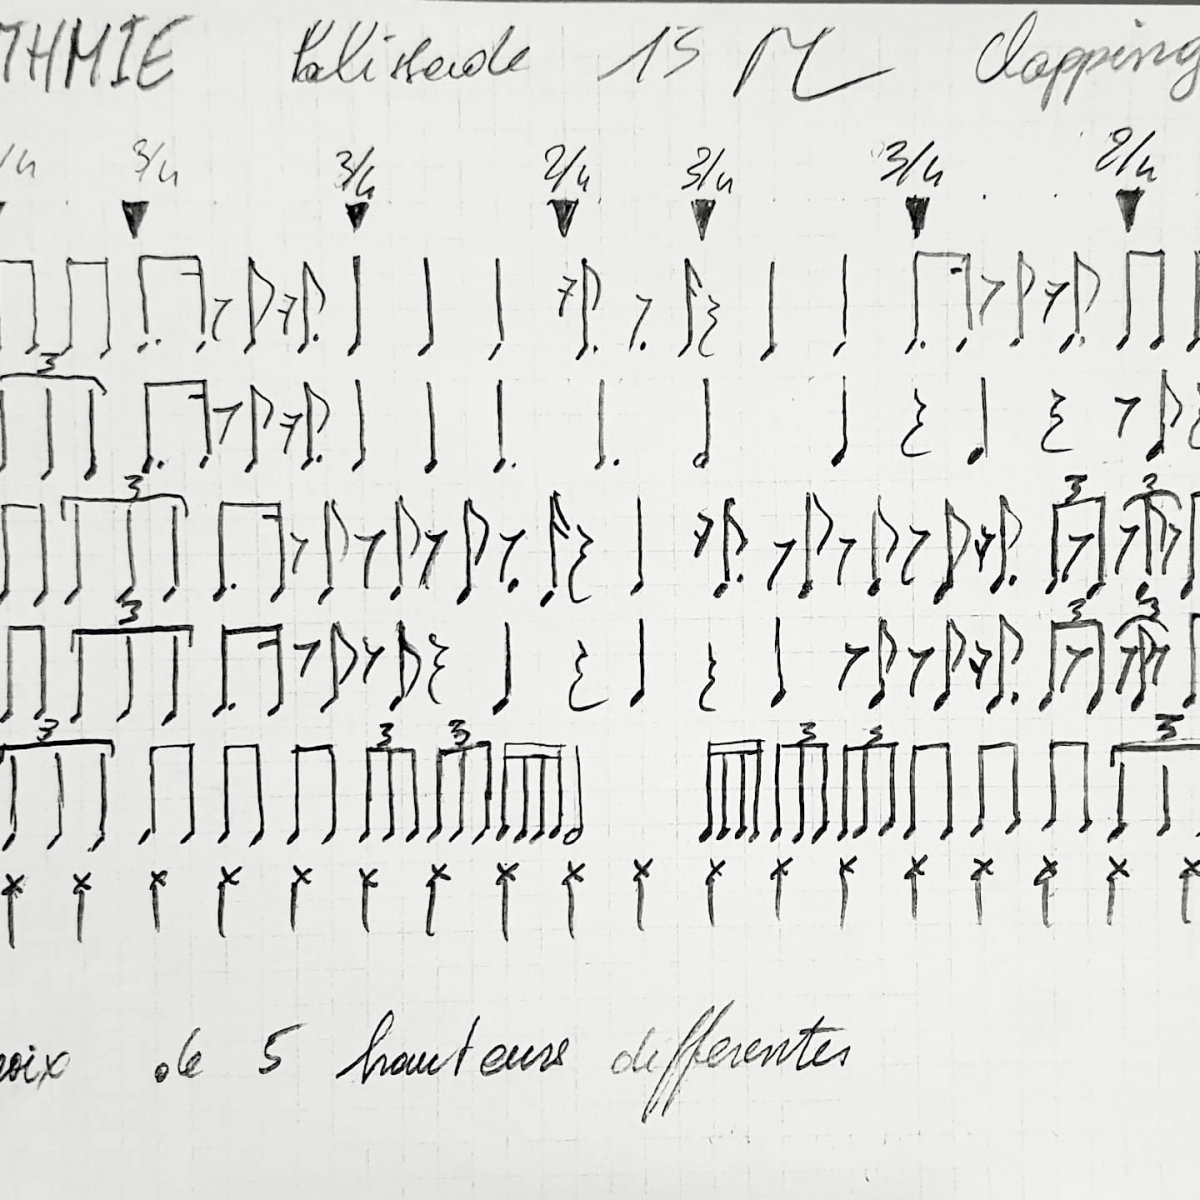 THMIE 13 Clapping
/4 3/4 3/4 2/4 3/4 3/4 2/4
3
3 3 3
3 3 3
3 3 3 3 3 3
de 5 hauteurs differentes